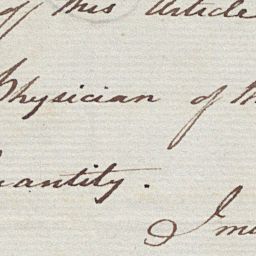 of this Article
Physician of th
uantity.
I mu